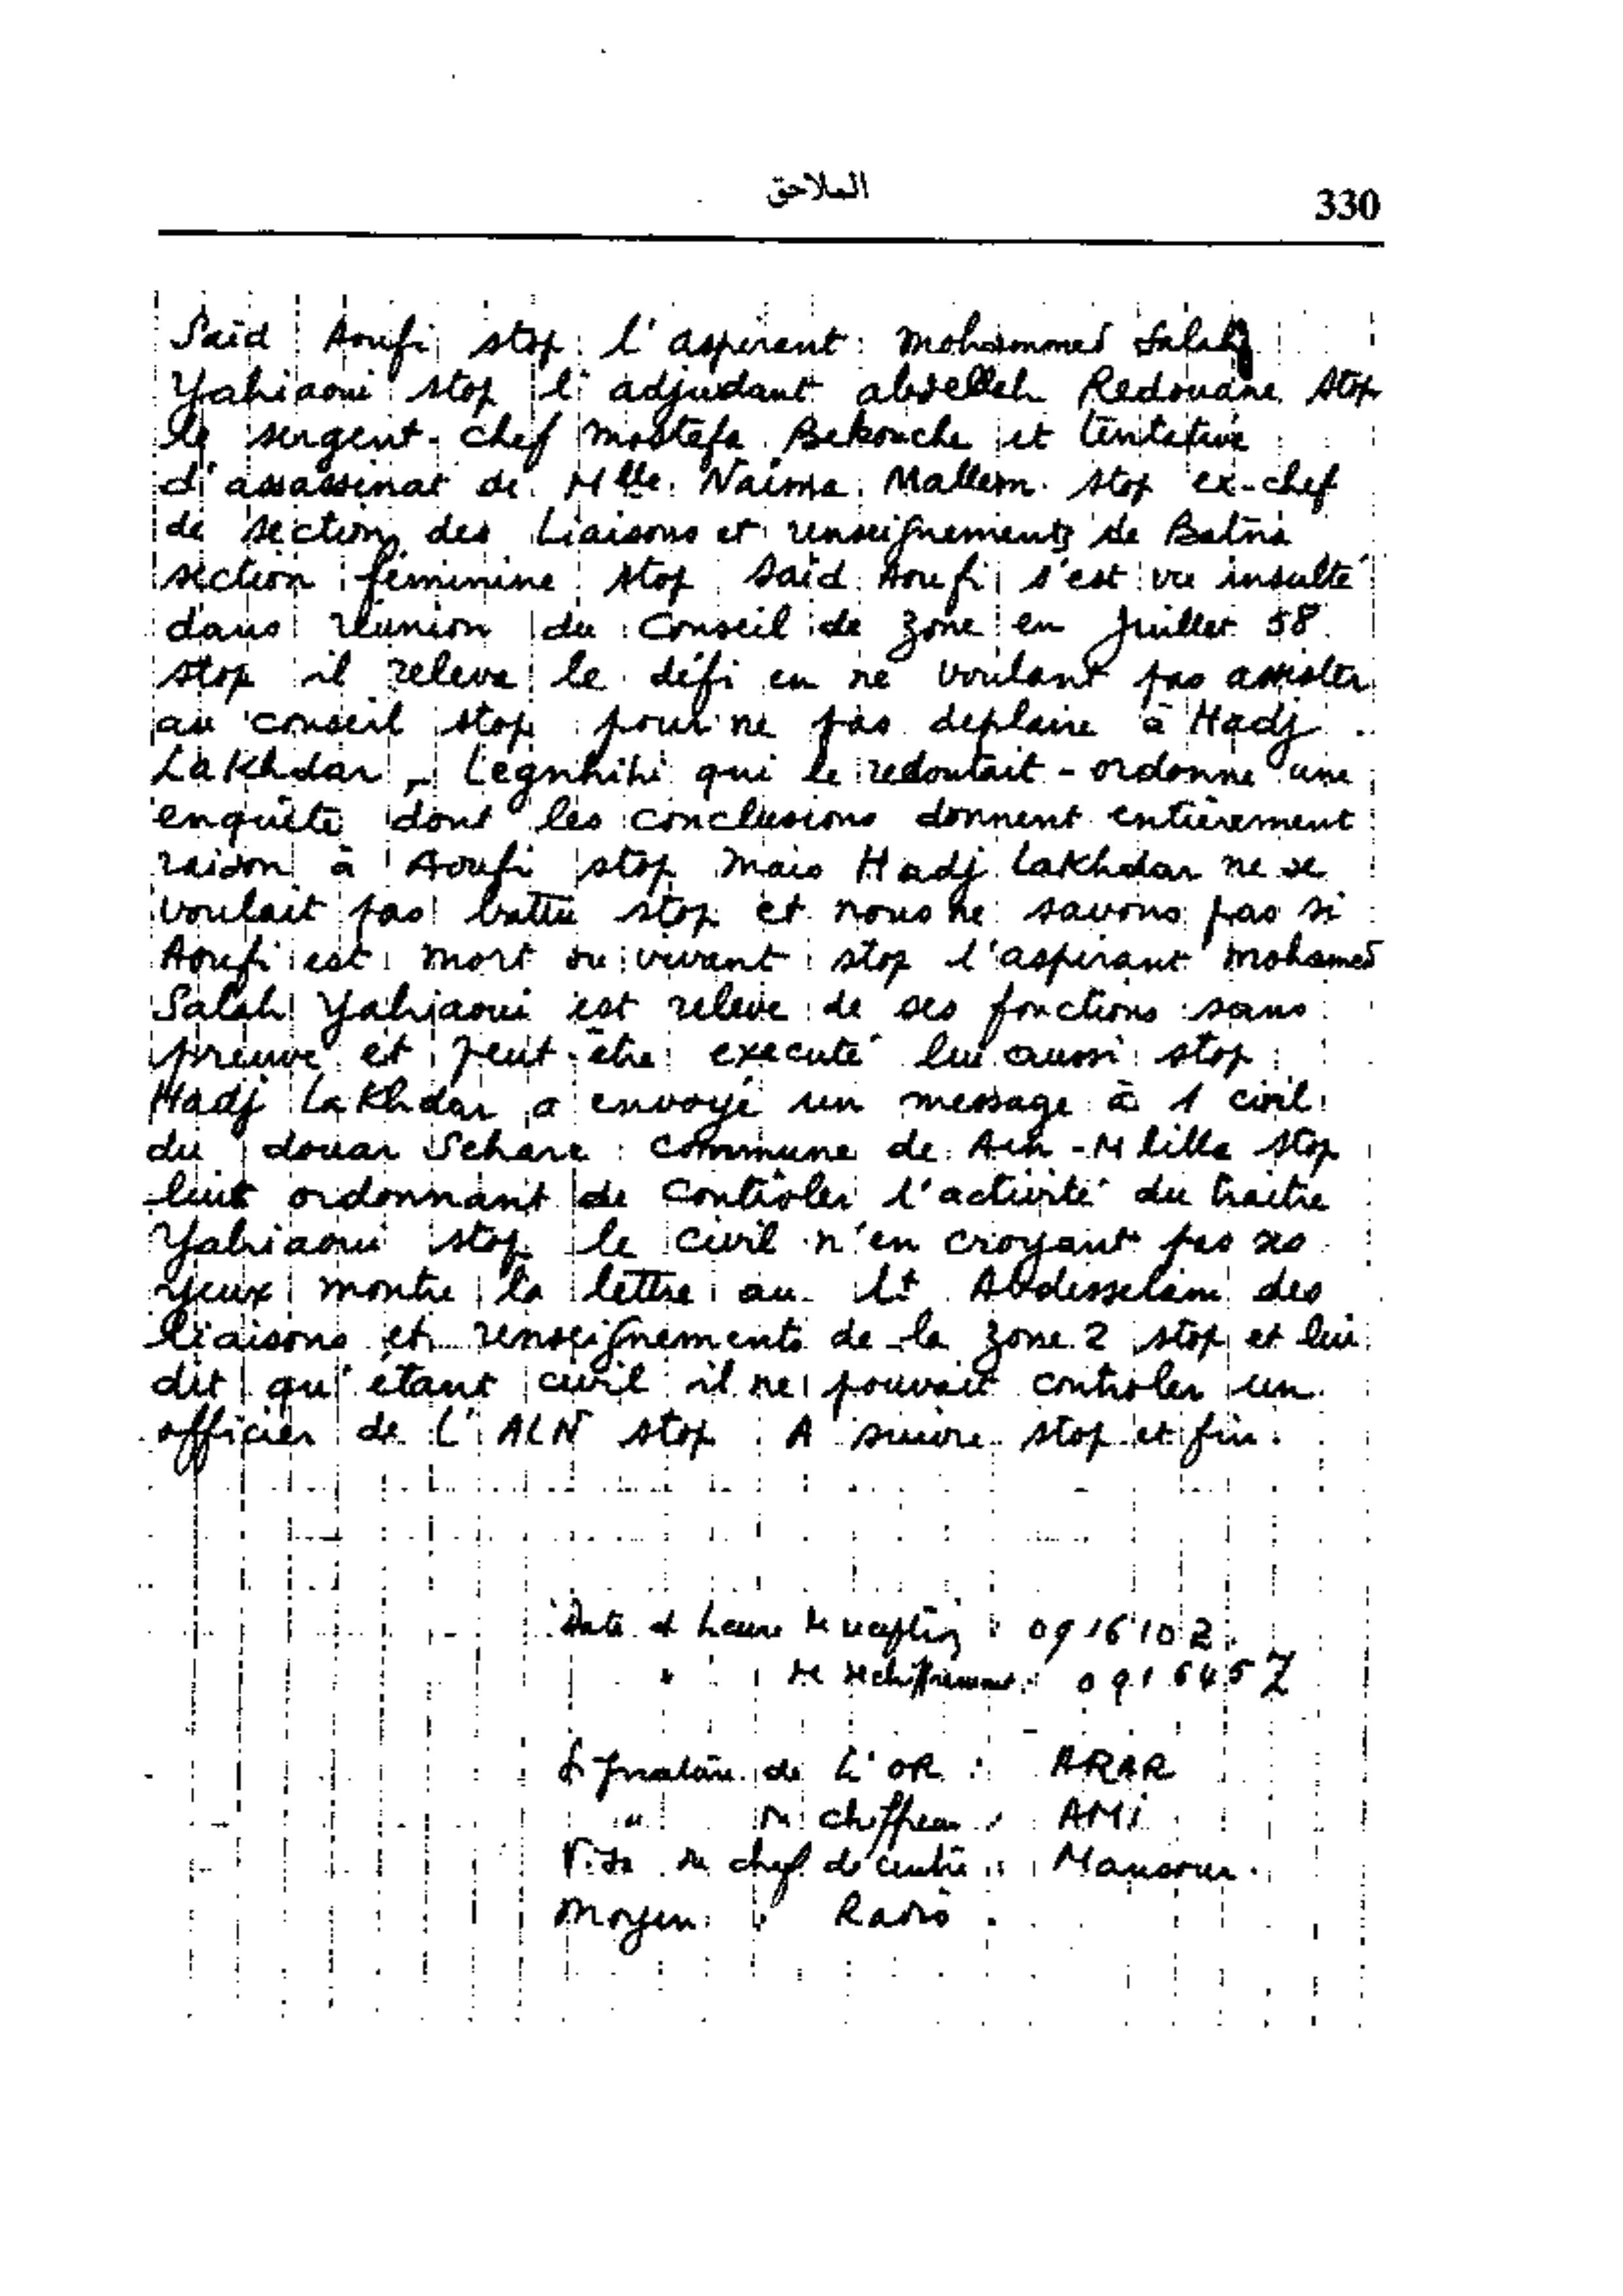 الملاحق
330
Said Aoufi stop l'aspirant mohammed Salah
Yahiaoui stop l'adjudant abdellah Redouane stop
le sergent-chef mostefa Bekouche et tentative
d'assassinat de Mlle Naima Mallem stop ex-chef
de section des Liaisons et renseignements de Batna
section féminine stop Said Aoufi s'est vu insulté
dans réunion du Conseil de zone en Juillet 58
stop il releva le défi en ne voulant pas assister
au conseil stop pour ne pas deplaire à Hadj
Lakhdar, qui le redoutait - ordonne une
enquête dont les conclusions donnent entièrement
raison à Aoufi stop mais Hadj Lakhdar ne se
voulait pas battu stop et nous ne savons pas si
Aoufi est mort ou vivant stop l'aspirant mohamed
Salah Yahiaoui est relevé de ses fonctions sans
preuve et peut-être executé lui aussi stop
Hadj Lakhdar a envoyé un message à 1 civil
du douar commune de Ain-Mlilla stop
luit ordonnant de contrôler l'activité du traitre
Yahiaoui stop le civil n'en croyant pas ses
yeux montre la lettre au Lt Abdesselam des
liaisons et renseignements de la zone 2 stop et lui
dit qu'étant civil il ne pouvait contrôler un
officier de L'ALN stop A suivre stop et fin.
Date et heure de reception : 091610Z
" de dechiffrement : 091645Z
Signature de L'OR : ARAR
" du chiffreur : AMI
Visa du chef de centre : Mansour.
Moyen : Radio.